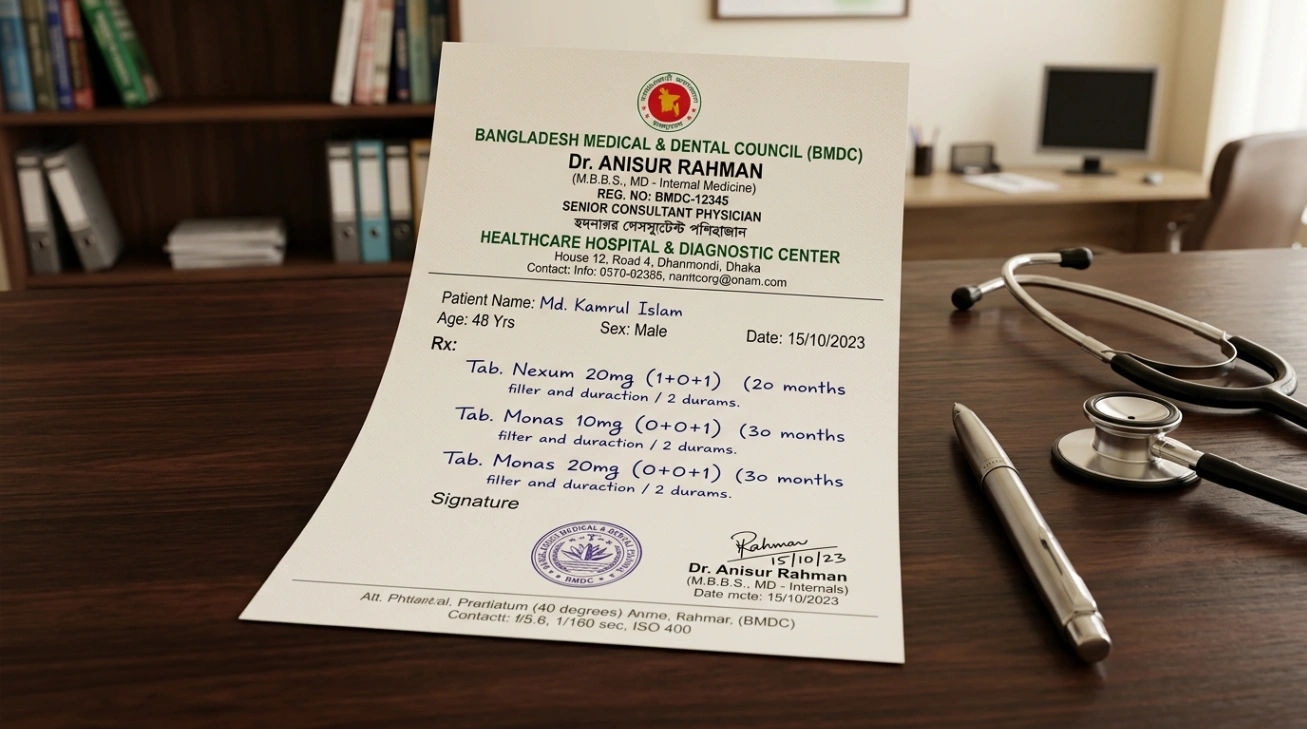 BANGLADESH MEDICAL & DENTAL COUNCIL (BMDC)
Dr. ANISUR RAHMAN
(M.B.B.S., MD - Internal Medicine)
REG. NO: BMDC-12345
SENIOR CONSULTANT PHYSICIAN
HEALTHCARE HOSPITAL & DIAGNOSTIC CENTER
House 12, Road 4, Dhanmondi, Dhaka
Contact: Info: 0570-02385, nanttcorg@onam.com
Patient Name: Md. Kamrul Islam
Age: 48 Yrs Sex: Male Date: 15/10/2023
Rx:
Tab. Nexum 20mg (1+0+1) (20 months
filler and duraction / 2 durams.
Tab. Monas 10mg (0+0+1) (30 months
filter and duraction / 2 durams.
Tab. Monas 20mg (0+0+1) (30 months
filler and duraction / 2 durams.
Signature
BMDC
Rahmar
15/10/23
Dr. Anisur Rahman
(M.B.B.S., MD - Internals)
Date mcte: 15/10/2023
Att. (40 degrees) Anme, Rahmar, (BMDC)
Contactt: f/5.6, 1/160 sec, ISO 400